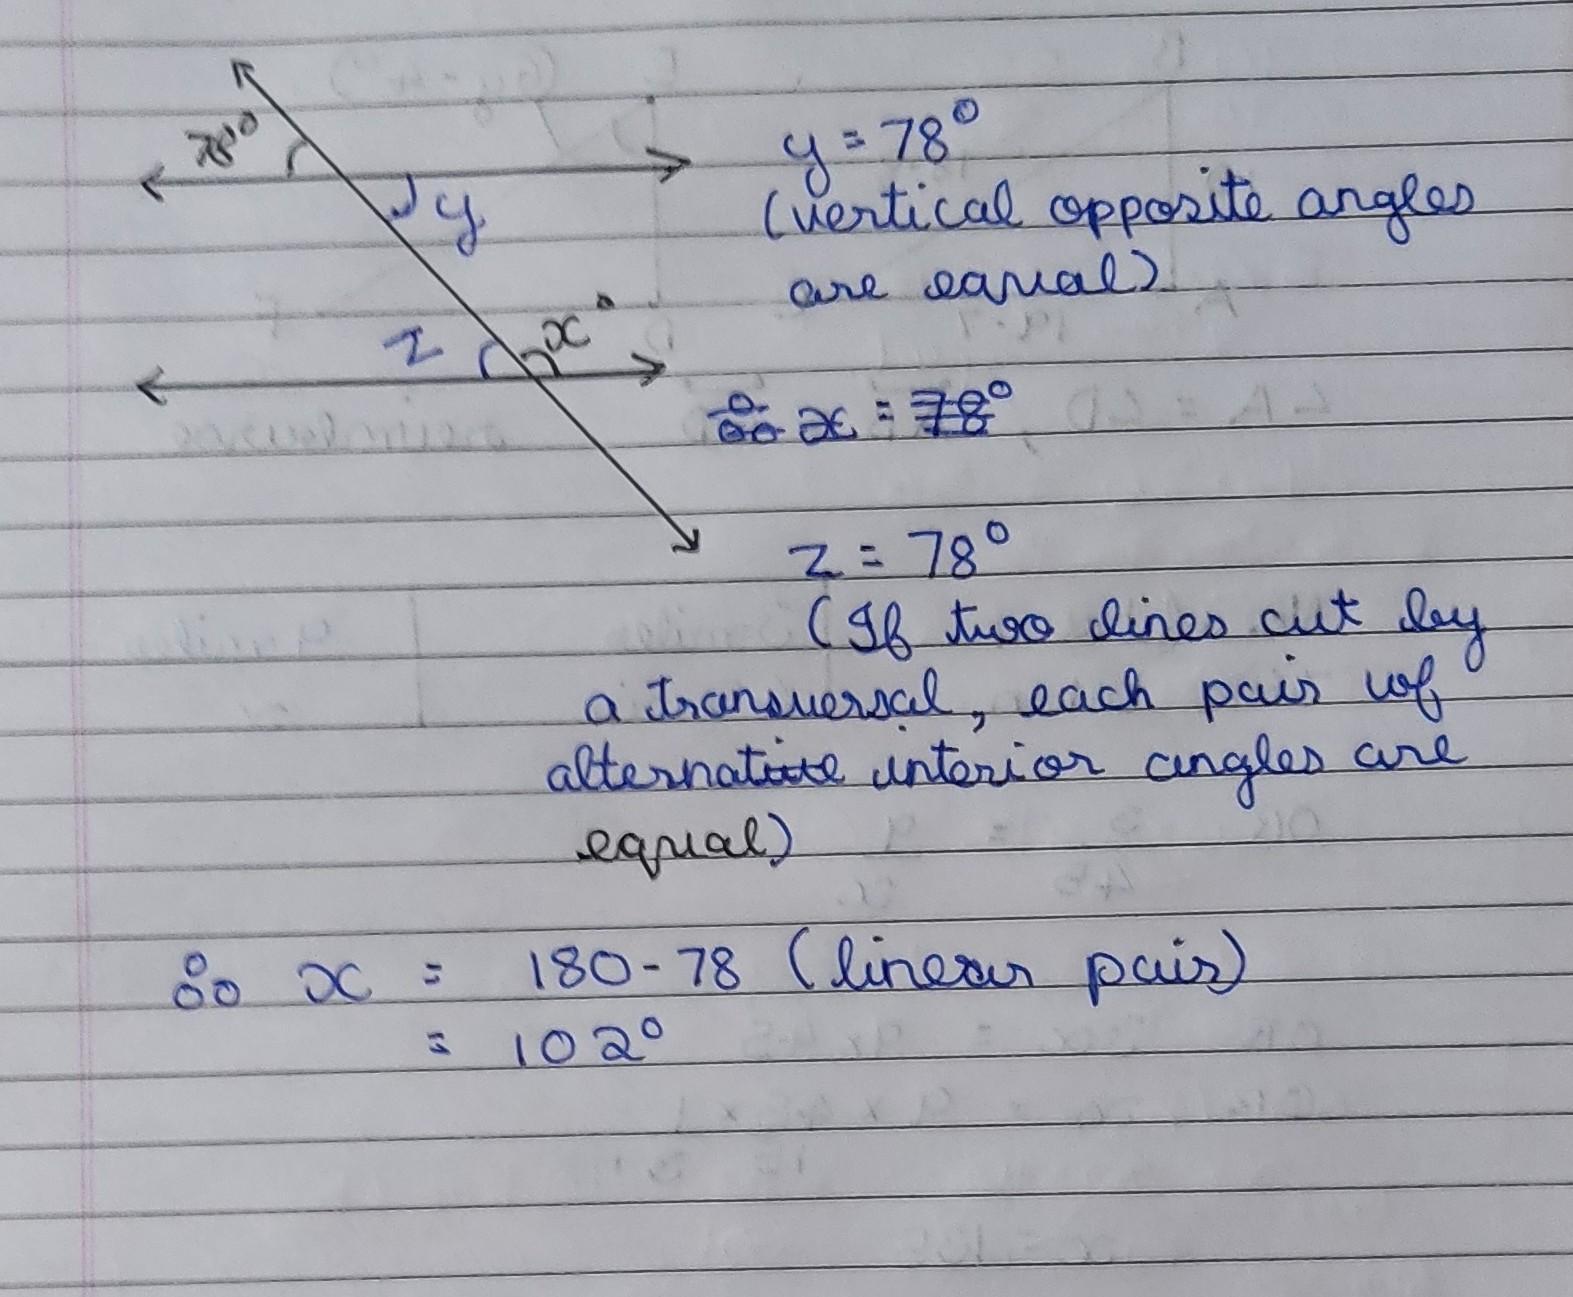 78°
y
z x°
y = 78°
(vertical opposite angles
are equal)
∴ x = 78°
z = 78°
(If two lines cut by
a transversal, each pair of
alternative interior angles are
equal)
∴ x = 180-78 (linear pair)
= 102°